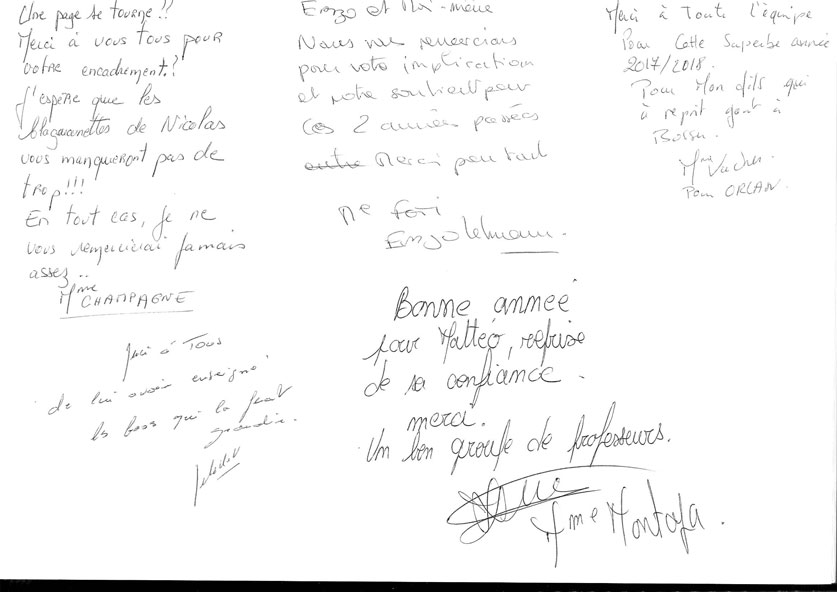 Une page se tourne !!
Merci à vous tous pour
votre encadrement.
J'espère que les
blagounettes de Nicolas
vous manqueront pas de
trop !!!
En tout cas, je ne
vous remercierai jamais
assez..
Mme CHAMPAGNE
Merci à Tous
de lui avoir enseigné
les bases qui la font
grandir.
Enzo et Moi-même
Nous vous remercions
pour votre implication
et votre soutient pour
Ces 2 années passées
Merci pour tout
Me Fori
Enzo
Bonne année
pour Mattéo, reprise
de sa confiance.
merci.
Un bon groupe de professeurs.
Mme Montoya.
Merci à Toute l'équipe
Pour Cette Superbe année
2017/2018.
Pour Mon fils qui
à reprit gout à
Bosser.
Mme
Pour ORLAN.